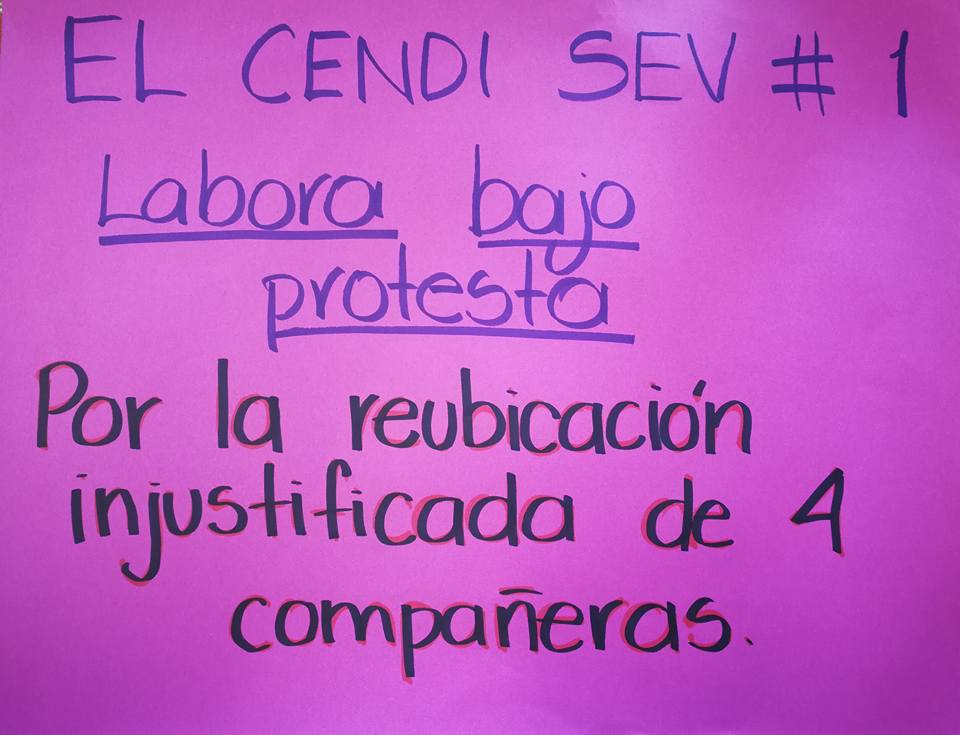 EL CENDI SEV # 1
Labora bajo
protesta
Por la reubicación
injustificada de 4
compañeras.